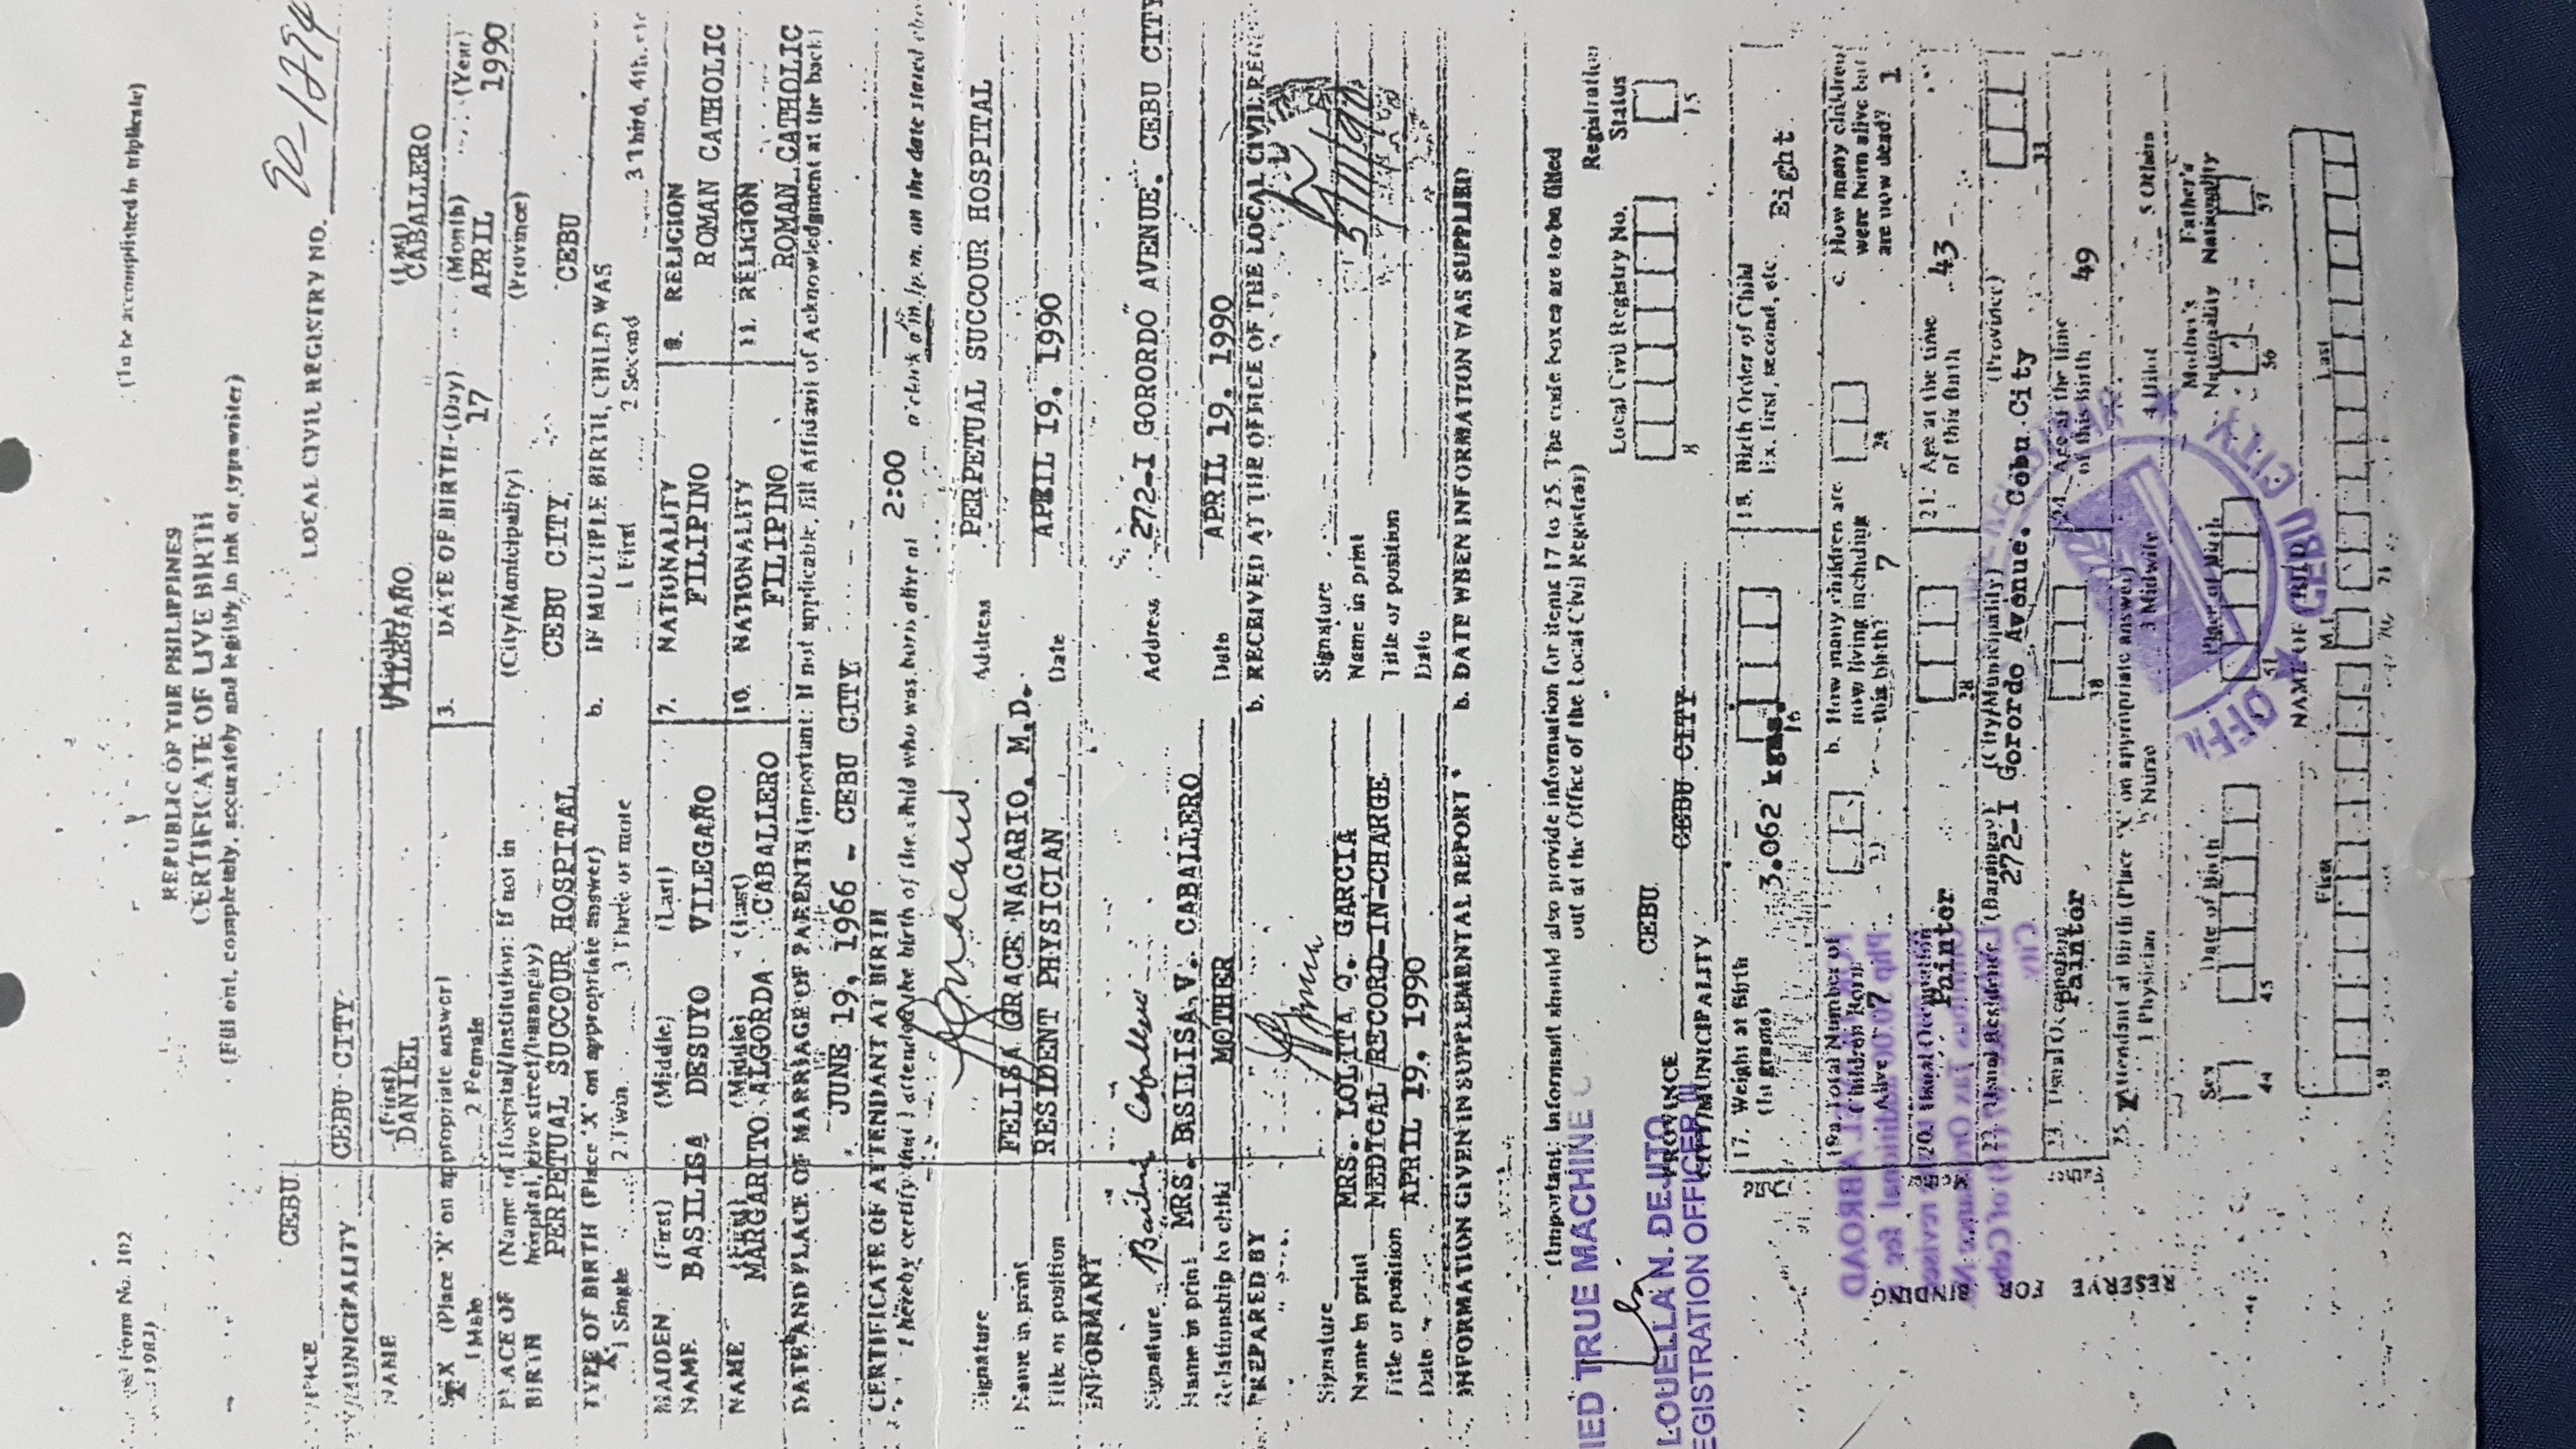 Form No. 102
1983)
(To be accomplished in triplicate)
REPUBLIC OF THE PHILIPPINES
CERTIFICATE OF LIVE BIRTH
(Fill out completely, accurately and legibly in ink or typewriter)
CEBU
LOCAL CIVIL REGISTRY NO. 90-1294
CITY/MUNICIPALITY CEBU CITY
NAME (First) DANIEL (Middle) VILEGAÑO (Last) CABALLERO
SEX (Place 'X' on appropriate answer)
X 1 Male 2 Female
3. DATE OF BIRTH (Day) 17 (Month) APRIL (Year) 1990
PLACE OF BIRTH (Name of Hospital/Institution: If not in hospital, give street/barangay)
PERPETUAL SUCCOUR HOSPITAL
(City/Municipality) CEBU CITY,
(Province) CEBU
TYPE OF BIRTH (Place 'X' on appropriate answer)
X 1 Single 2 Twin 3 Three or more
b. IF MULTIPLE BIRTH, CHILD WAS
1 First 2 Second 3 Third, 4th, etc
MAIDEN NAME (First) BASILISA (Middle) DESUYO (Last) VILEGAÑO
7. NATIONALITY FILIPINO
8. RELIGION ROMAN CATHOLIC
NAME (First) MARGARITO (Middle) ALGORDA (Last) CABALLERO
10. NATIONALITY FILIPINO
11. RELIGION ROMAN CATHOLIC
DATE AND PLACE OF MARRIAGE OF PARENTS (Important: If not applicable, fill Affidavit of Acknowledgment at the back)
JUNE 19, 1966 - CEBU CITY
CERTIFICATE OF ATTENDANT AT BIRTH
I hereby certify that I attended the birth of the child who was born alive at 2:00 o'clock a.m./p.m. on the date stated above
Signature
Name in print FELISA GRACE NACARIO, M.D.
Title or position RESIDENT PHYSICIAN
Address PERPETUAL SUCCOUR HOSPITAL
Date APRIL 19, 1990
INFORMANT
Signature
Name in print MRS. BASILISA V. CABALLERO
Relationship to child MOTHER
Address 272-I GORORDO AVENUE, CEBU CITY
Date APRIL 19, 1990
PREPARED BY
Signature
Name in print MRS. LOLITA Q. GARCIA
Title or position MEDICAL RECORD-IN-CHARGE
Date APRIL 19, 1990
b. RECEIVED AT THE OFFICE OF THE LOCAL CIVIL
Signature
Name in print
Title or position
Date
INFORMATION GIVEN IN SUPPLEMENTAL REPORT
b. DATE WHEN INFORMATION WAS SUPPLIED
(Important: Informant should also provide information for items 17 to 25. The code boxes are to be filled
out at the Office of the Local Civil Registrar)
TRUE MACHINE
LOUELLA N. DEJITO
REGISTRATION OFFICER III
PROVINCE CEBU
CITY/MUNICIPALITY CEBU CITY
Local Civil Registry No.
8
Registration Status
15
17. Weight at Birth (In grams) 3.062 kgms.
16
18. Birth Order of Child Ex. first, second, etc. Eight
19a. Total Number of Children Born Alive 7
b. How many children are now living including this birth? 7
24
c. How many children were born alive but are now dead? 1
20. Usual Occupation Painter
28
21. Age at the time of this birth 43
22. Usual Residence (Barangay) (City/Municipality) (Province)
272-I Gorordo Avenue, Cebu City
33
23. Usual Occupation Painter
38
24. Age at the time of this birth 49
25. Attendant at Birth (Place 'X' on appropriate answer)
X 1 Physician 2 Nurse 3 Midwife 4 Hilot 5 Others
Sex
44
Date of Birth
45
Place of Birth
51
Mother's Nationality
56
Father's Nationality
57
NAME OF CHILD
First M.I. Last
58 70 71
RESERVE FOR BINDING
CEBU CITY